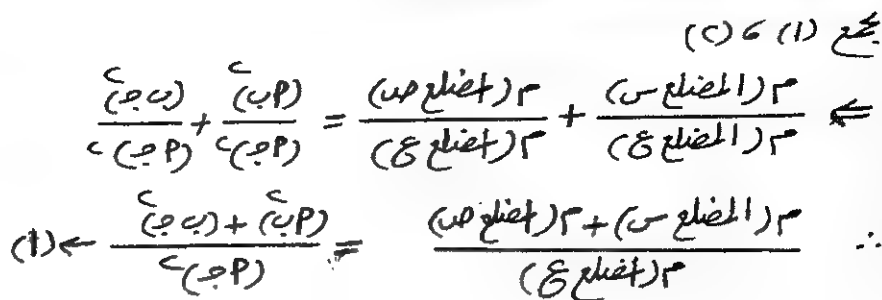 بجمع (١) ، (٢)
⇐ م(المضلع س)/م(المضلع ع) + م(المضلع ص)/م(المضلع ع) = (٢ب)^٢/(٢جـ)^٢ + (ب جـ)^٢/(٢جـ)^٢
∴ م(المضلع س)+م(المضلع ص)/م(المضلع ع) = (٢ب)^٢ + (ب جـ)^٢/(٢جـ)^٢ ← (١)